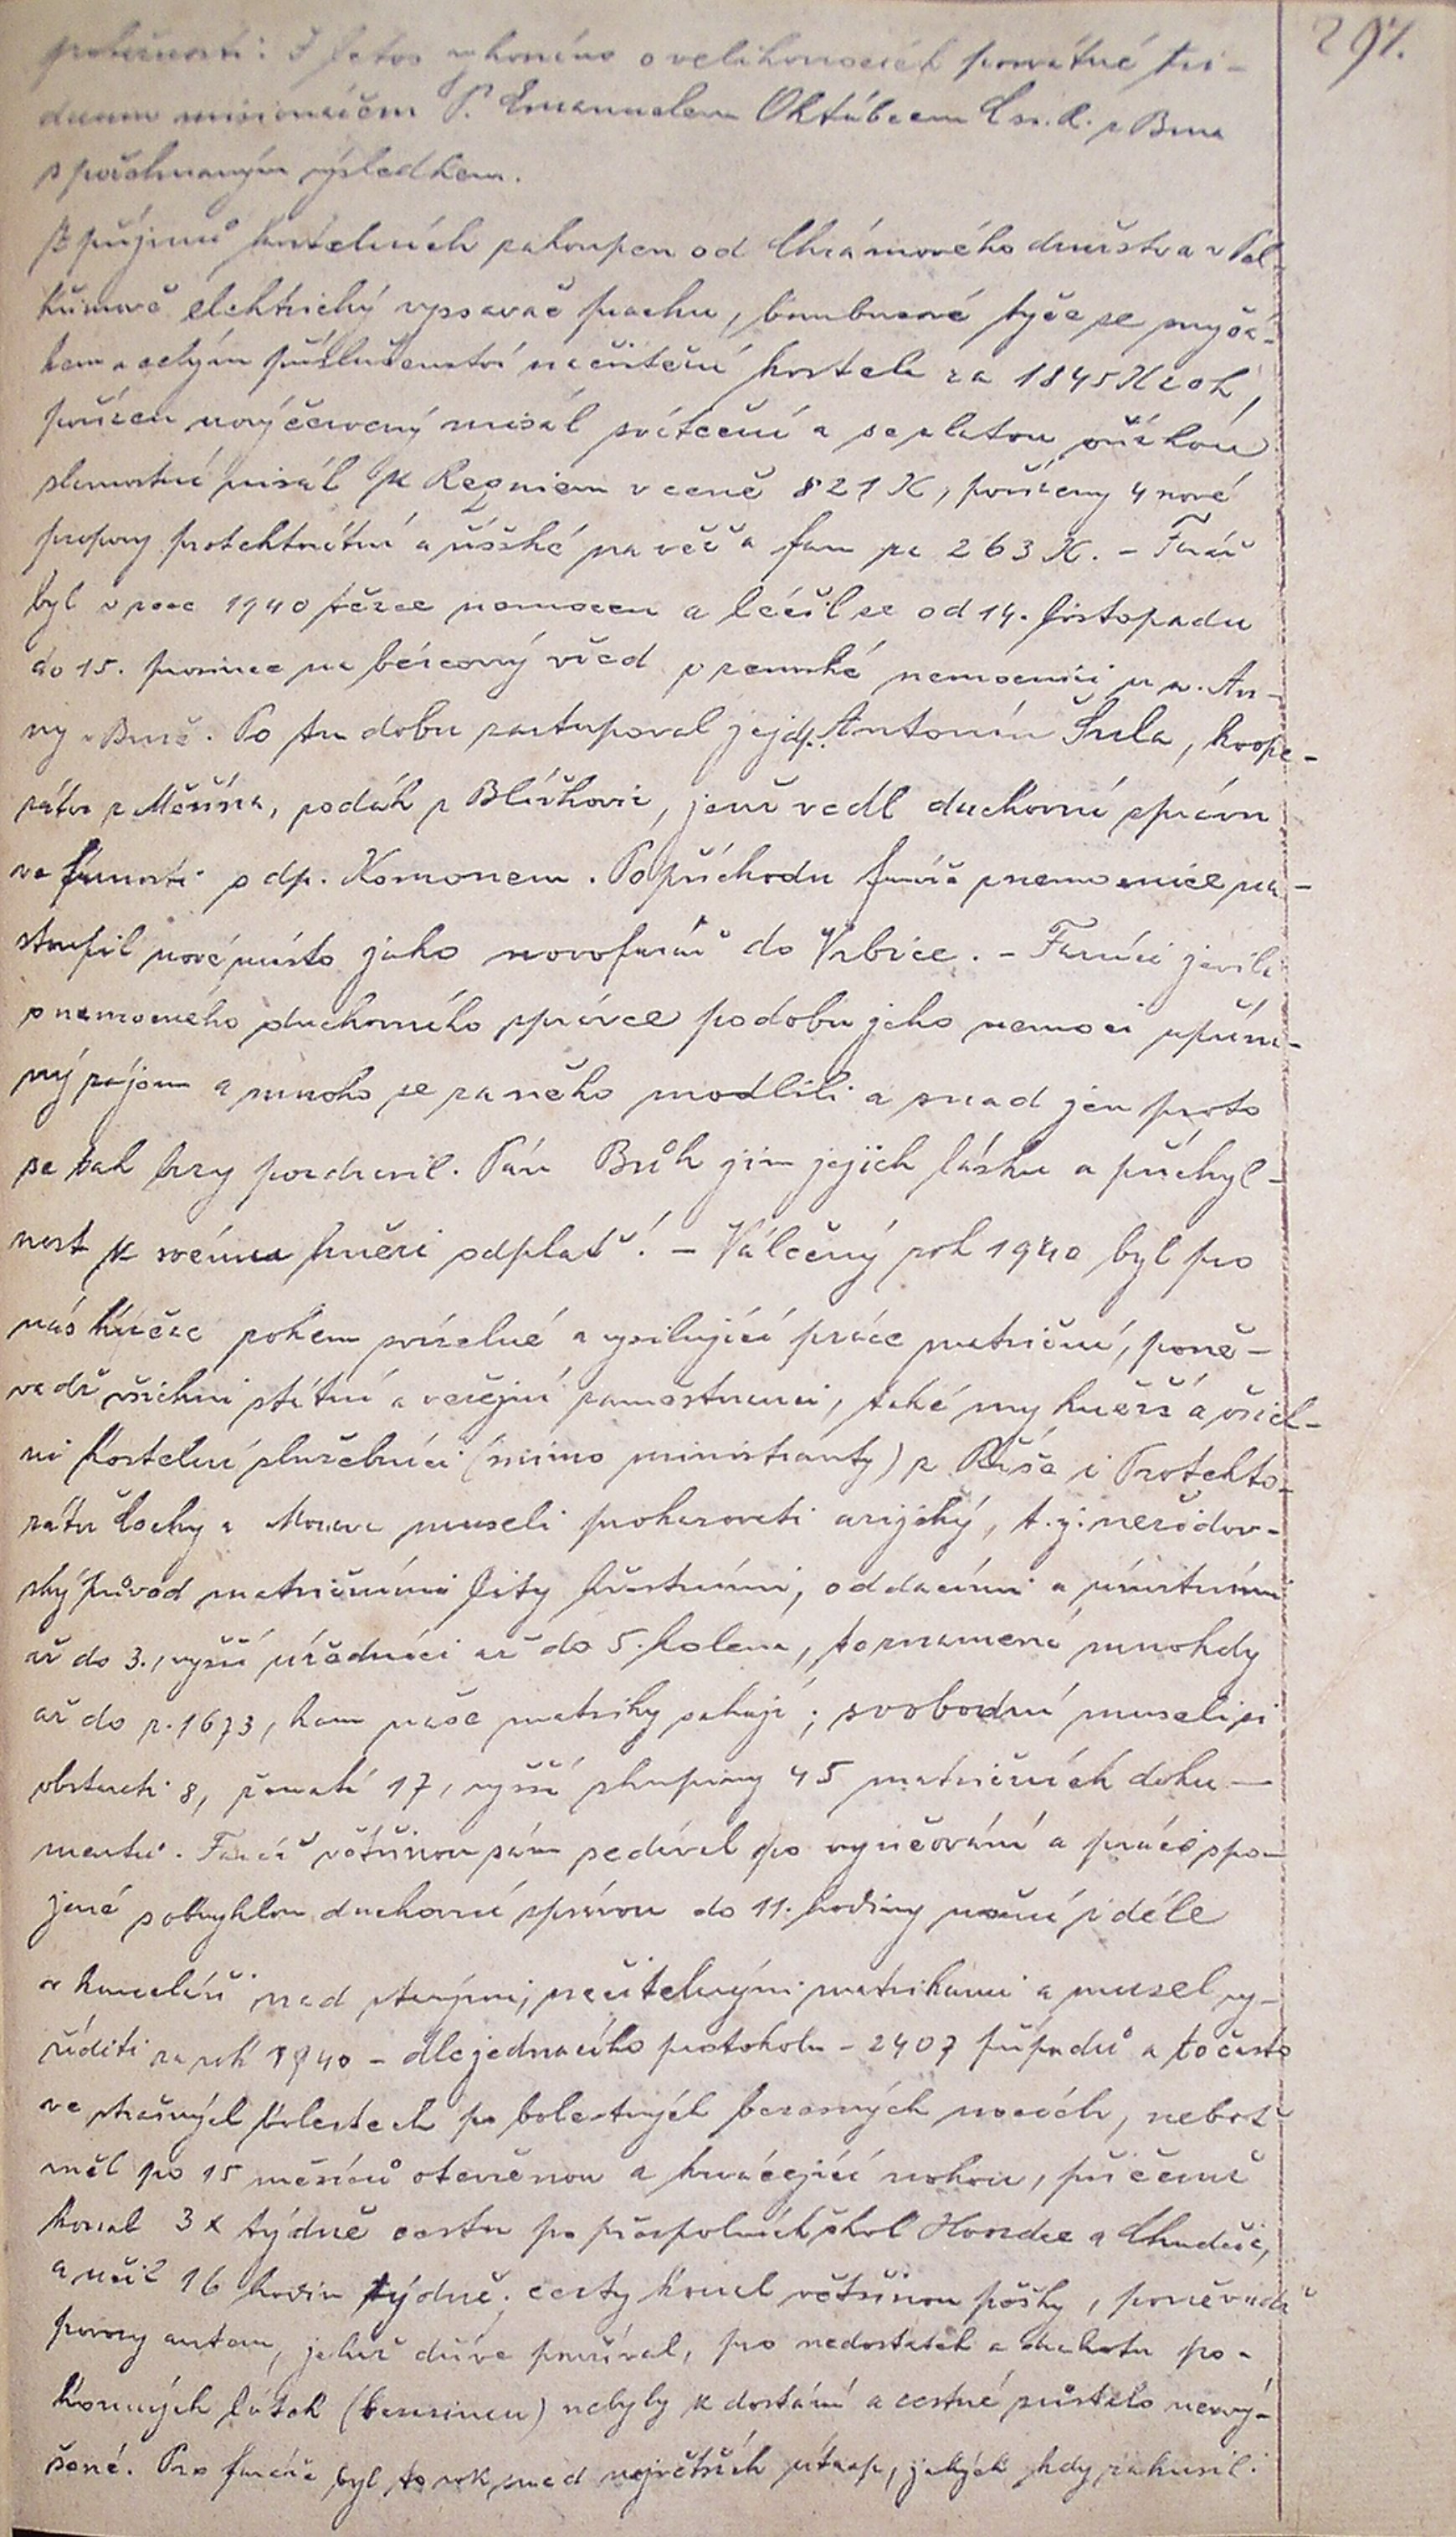 297.
I letos vykonáno o velikonocích povátné tri-
duum misionářem P. Emanuelem Oktábcem C.ss.R. z Brna
s požehnaným výsledkem.
Z příjmů kostelních zakoupen od Chrámového družstva v Pel-
hřimově elektrický vyssavač prachu, bambusové tyče se smyčá-
kem a celým příslušenství na čištění kostela za 1845 K 20 h,
pořízen nový červený misál sváteční a se zlatou ořízkou
slavnostní misál k Requiem v ceně 821 K, pořízeny 4 nové
prapory protektorátní a říšské na věž a faru za 263 K. - Farář
byl v roce 1940 těžce nemocen a léčil se od 14. listopadu
do 15. prosince na bércový vřed v zemské nemocnici u sv. An-
ny v Brně. Po tu dobu zastupoval jej dp. Antonín Šula, koope-
rátor z Měřína, rodák z Blížkovic, jenž vedl duchovní správu
ve farnosti s dp. Komonem. Po příchodu faráře z nemocnice na-
stoupil nové místo jako novofarář do Vrbice. - Farníci jevili
o nemocného duchovního správce po dobu jeho nemoci upřím-
ný zájem a mnoho se za něho modlili a snad jen proto
se tak brzy pozdravil. Pán Bůh jim jejich lásku a příchyl-
nost k svému knězi odplať! - Válečný rok 1940 byl pro
nás kněze rokem svízelné a vysilující práce matriční, poně-
vadž všichni státní a veřejní zaměstnanci, také my kněží a všich-
ni kostelní služebníci (mimo ministranty) z Říše i Protekto-
rátu Čechy a Morava museli prokazovati arijský, t. j. nežidov-
ský původ matričními listy křestními, oddacími a úmrtními
až do 3., vyšší úředníci až do 5. kolena, to znamená mnohdy
až do r. 1673, kam naše matriky sahají; svobodní museli si
obstarati 8, ženatí 17, vyšší skupiny 45 matričních doku-
mentů. Farář většinou sám sedával po vyučování a práci spo-
jené s obvyklou duchovní správou do 11. hodiny noční i déle
v kanceláři nad starými, nečitelnými matrikami a musel vy-
říditi za rok 1940 - dle jednacího protokolu - 2407 případů a to často
ve strašných bolestech po bolestných bezesných nocích, neboť
měl po 15 měsíců otevřenou a krvácející nohou, při čemž
konal 3x týdně cestu po přespolních škol Hordce a Chudčic,
a učil 16 hodin týdně; cesty konal většinou pěšky, poněvadž
povozy autem, jehož dříve používal, pro nedostatek a drahotu po-
honných látek (benzinu) nebyly k dostání a cestné zůstalo nezvý-
šené. Pro faráře byl to rok snad největších útrap, jakých kdy zakusil.